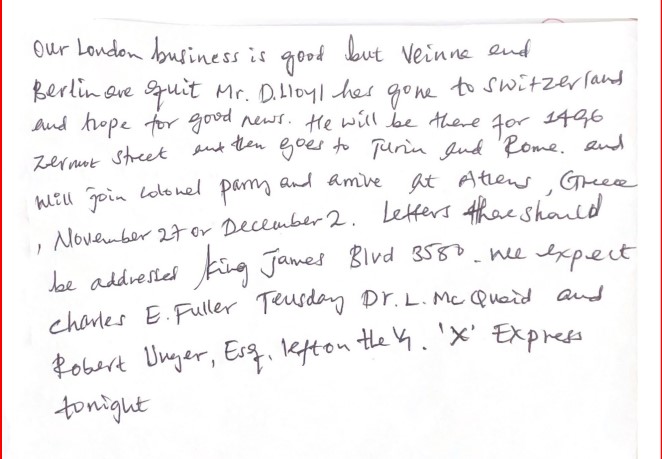 Our London business is good but Veinna and
Berlin are quit Mr. D. Lloyl has gone to switzerland
and hope for good news. He will be there for 1496
Zermot street and then goes to Turin and Rome. and
will join colonel parry and arrive at Athens, Greece
, November 27 or December 2. Letters there should
be addressed king James Blvd 3580. we expect
charles E. Fuller Teusday Dr. L. Mc Quaid and
Robert Unger, Esq. left on the 'X' Express
tonight